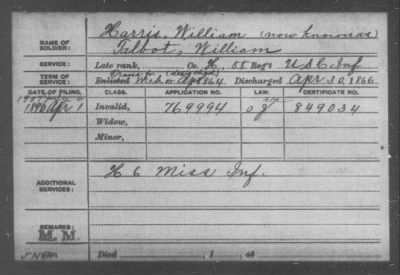 NAME OF SOLDIER: Harris, William (now known as)
Talbot, William
SERVICE: Late rank, Co. H, 58 Reg't U S C Inf
TERM OF SERVICE: Enlisted 1864. Discharged Apr. 30, 1866.
DATE OF FILING. CLASS. APPLICATION NO. LAW. CERTIFICATE NO.
Apr 1 Invalid, 769994 og 849034
Widow,
Minor,
ADDITIONAL SERVICES: H 6 Miss Inf.
REMARKS:
M. M.
Died , 1 , at